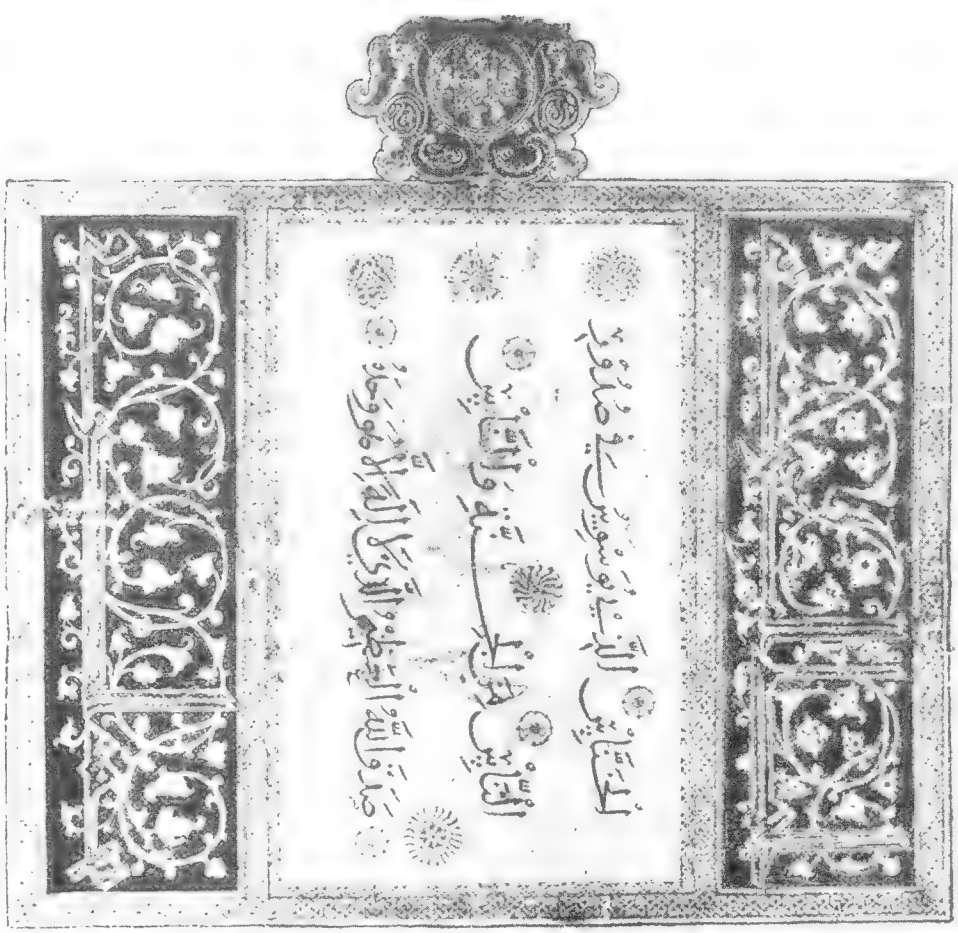 الخناس الذي يوسوس في صدور
الناس من الجنة والناس
صدق الله العظيم الذي لا اله الا هو وحده